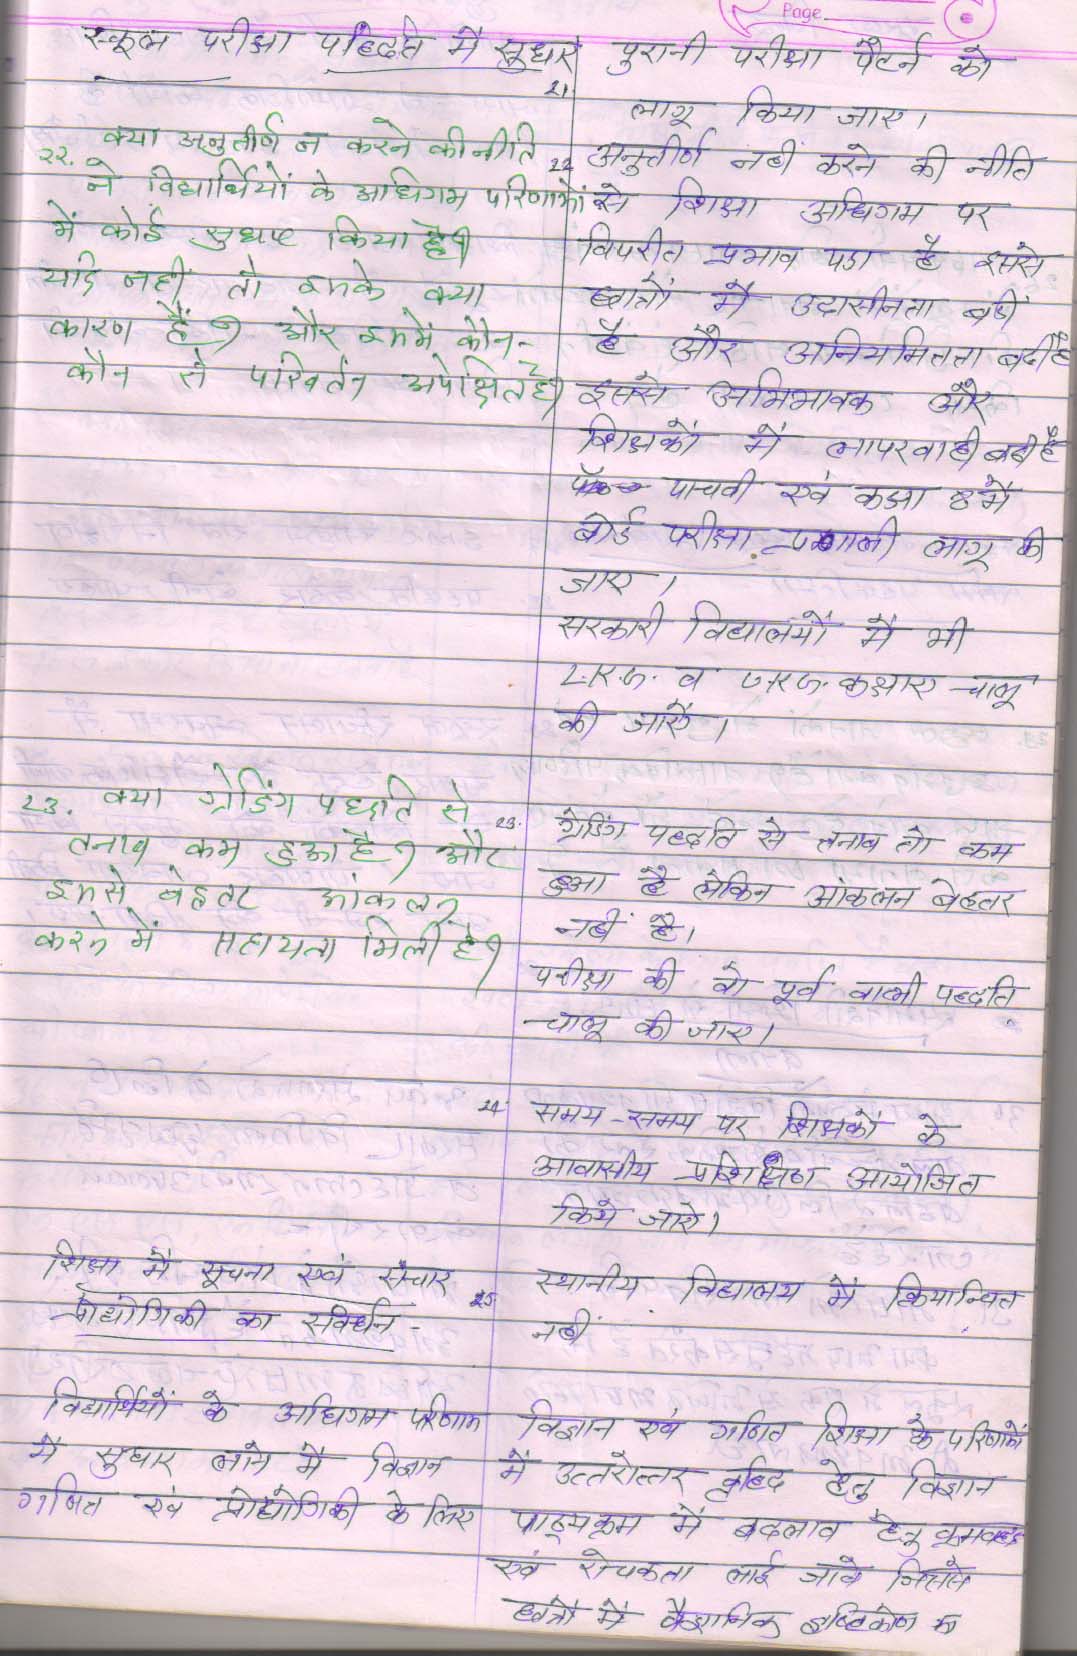 Page
स्कूल परीक्षा पद्धति में सुधार
21.
पुरानी परीक्षा पैटर्न को
लागू किया जाए।
22. क्या अनुतीर्ण न करने की नीति
ने विद्यार्थियों के अधिगम परिणामों
में कोई सुधार किया है?
यदि नहीं तो इसके क्या
कारण हैं? और इसमें कौन-
कौन से परिवर्तन अपेक्षित है?
22 अनुतीर्ण नहीं करने की नीति
से शिक्षा अधिगम पर
विपरीत प्रभाव पडा है इससे
छात्रों में उदासीनता बढी
है और अनियमितता बढी है
इससे अभिभावक और
शिक्षकों में लापरवाही बढी है
पाचवी एवं कक्षा 8 में
बोर्ड परीक्षा प्रणाली लागू की
जाए।
सरकारी विद्यालयों में भी
L.K.G. व U.K.G. कक्षाए चालू
की जाऐं।
23. क्या ग्रेडिंग पद्धति से
तनाव कम हुआ है? और
इससे बेहतर आंकलन
करने में सहायता मिली है?
23. ग्रेडिंग पद्धति से तनाव तो कम
हुआ है लेकिन आंकलन बेहतर
नहीं है।
परीक्षा की वो पूर्व वाली पद्धति
चालू की जाए।
24. समय-समय पर शिक्षकों के
आवासीय प्रशिक्षण आयोजित
किये जाऐ।
शिक्षा में सूचना एवं संचार
प्रोद्योगिकी का संवर्धन -
25 स्थानीय विद्यालय में क्रियान्वित
नहीं
विद्यार्थियों के अधिगम परिणाम
में सुधार लाने में विज्ञान
गणित एवं प्रोद्योगिकी के लिए
विज्ञान एवं गणित शिक्षा के परिणामों
में उत्तरोत्तर वृद्धि हेतु विज्ञान
पाठ्यक्रम में बदलाव हेतु क्रमबद्ध
एवं रोचकता लाई जावे जिससे
छात्रों में वैज्ञानिक दृष्टिकोण